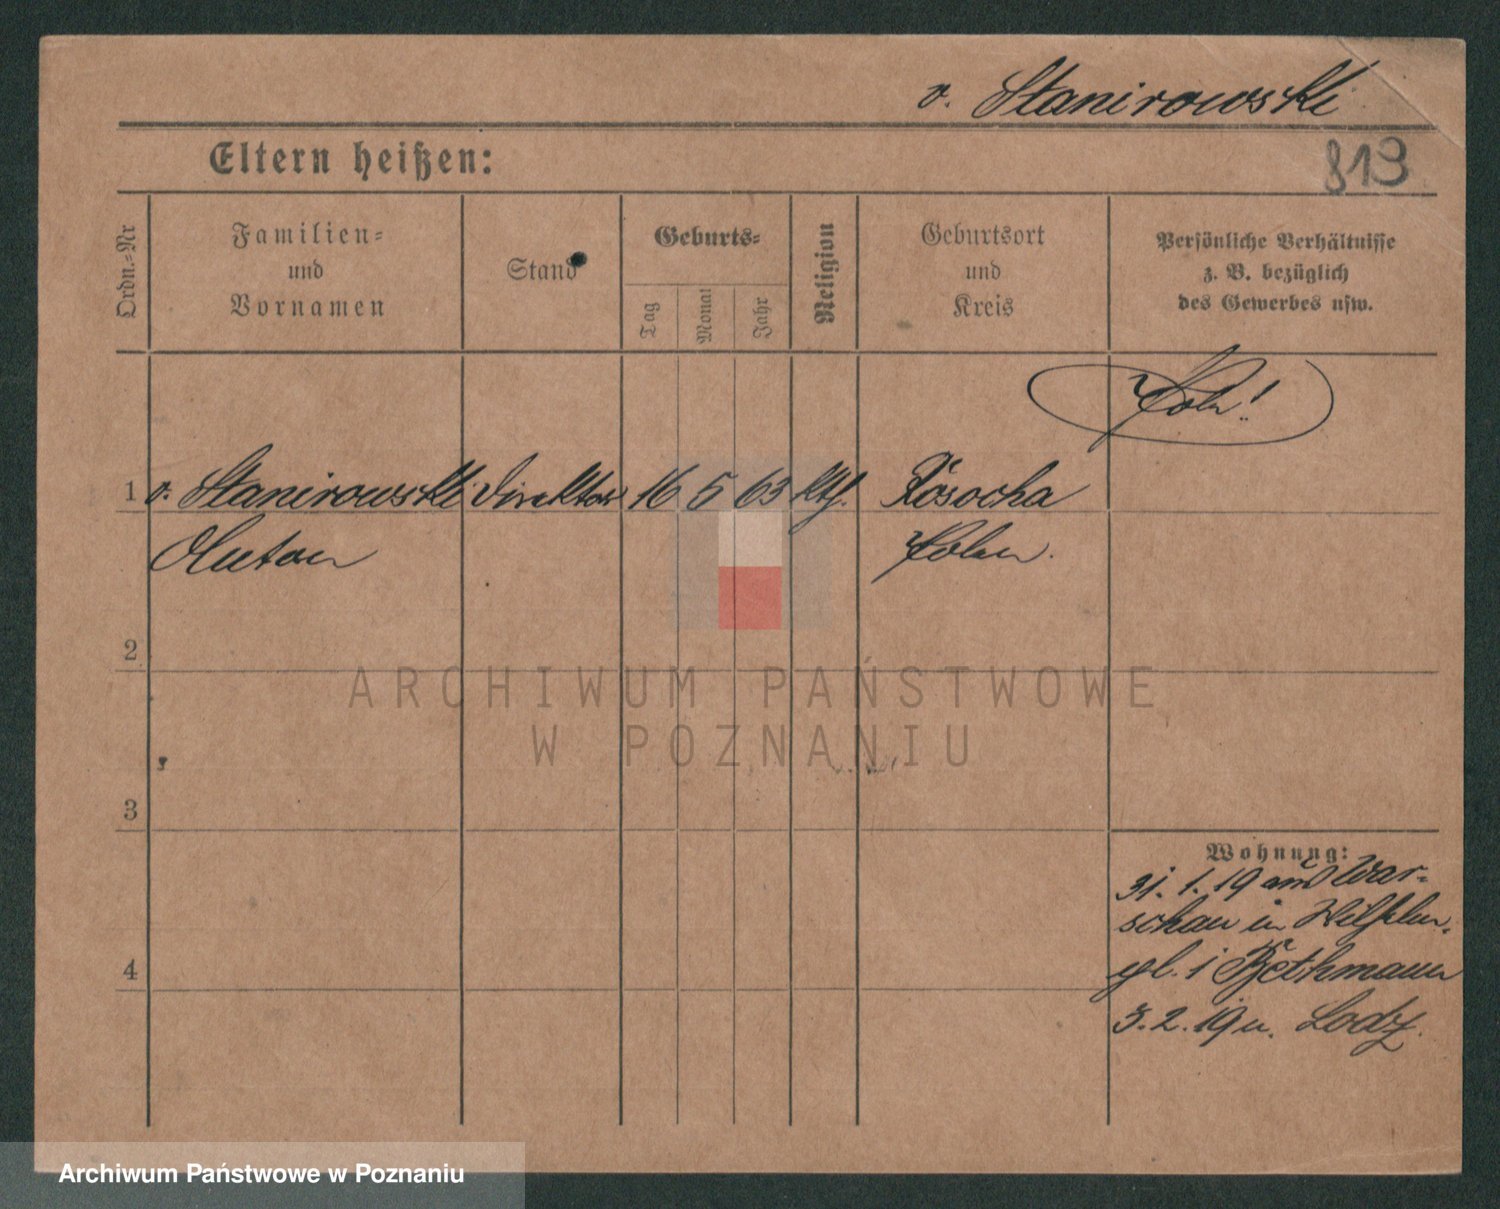 v. Stanirowski
Eltern heißen:
813
Ordn.-Nr
Familien-
und
Vornamen
Stand
Geburts-
Tag
Monat
Jahr
Religion
Geburtsort
und
Kreis
Persönliche Verhältnisse
z. B. bezüglich
des Gewerbes usw.
1 v. Stanirowski Direktor 16 5 63 kth. Rosocha
Anton Polen.
2
3
4
Wohnung:
31. 1. 19 aus War-
schau in Wilhelm.
pl. i Bethmann
3. 2. 19 n. Lodz.
ARCHIWUM PAŃSTWOWE
W POZNANIU
Archiwum Państwowe w Poznaniu